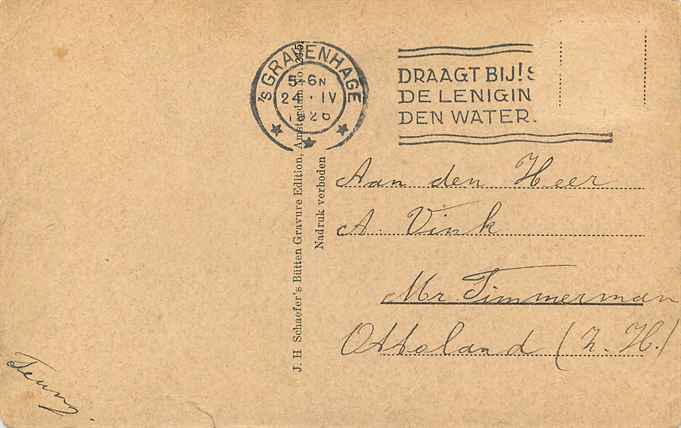 'sGRAVENHAGE
5-6N
24.IV
1926
DRAAGT BIJ! S
DE LENIGIN
DEN WATER.
J. H Schaefer's Bütten Gravure Edition, Amsterdam
Nadruk verboden
Aan den Heer
A. Vink
Mr Timmerman
Ottoland (Z. H.)
Teun.